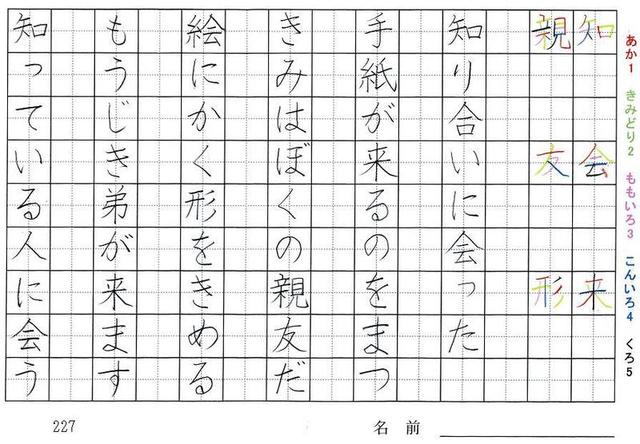 あか1 きみどり2 ももいろ3 こんいろ4 くろ5
知会来
親友形
知り合いに会った
手紙が来るのをまつ
きみはぼくの親友だ
絵にかく形をきめる
もうじき弟が来ます
知っている人に会う
227
名前